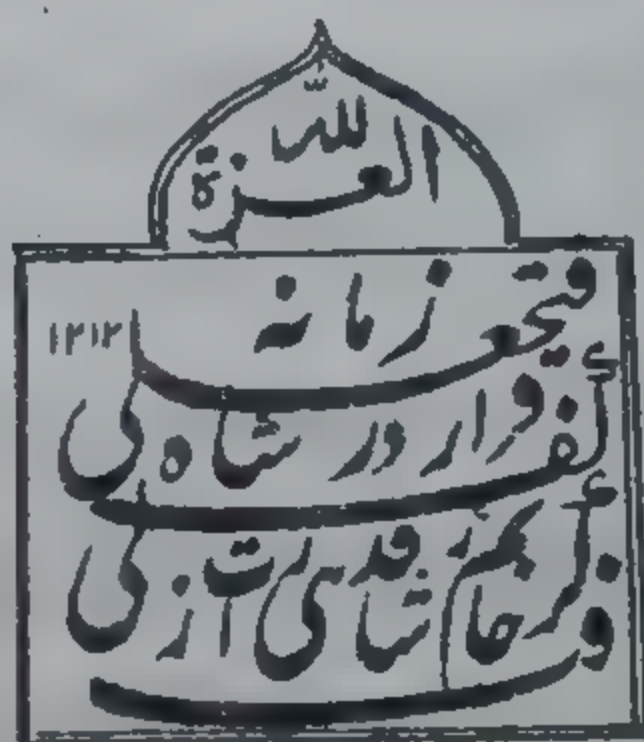 العزة لله
گرفت خاتم شاهی ز قدرت ازلی
قرار در کف شاه زمانه فتحعلی
۱۲۱۲